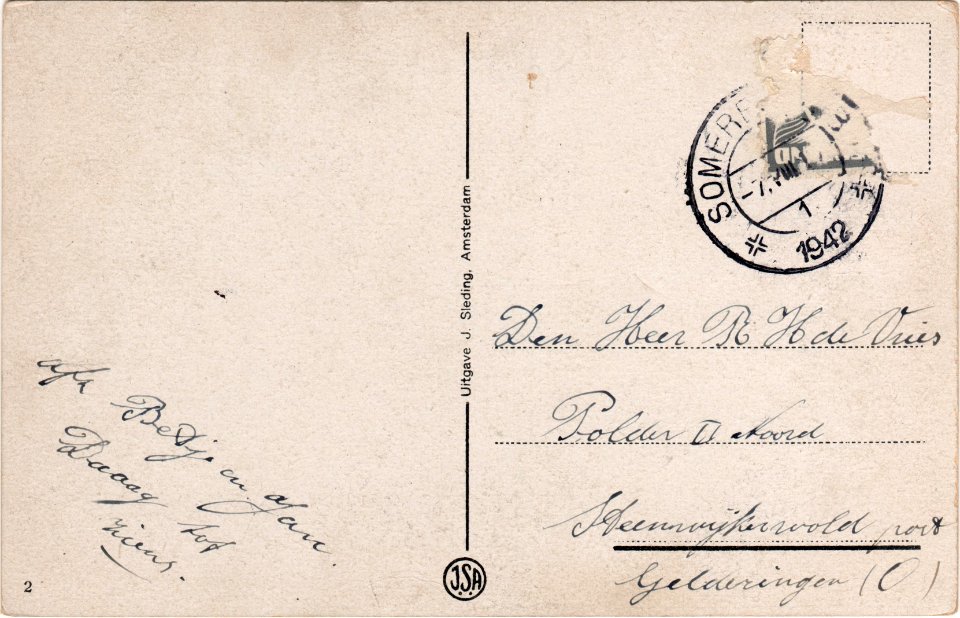 SOMERE
-7.VIII
1
1942
Uitgave J. Sleding, Amsterdam
Den Heer R H de Vries
Polder II Noord
Steenwijkerwold post
Gelderingen (O)
afz Betje en Jan.
Daaag tot
ziens.
2
J.S.A.